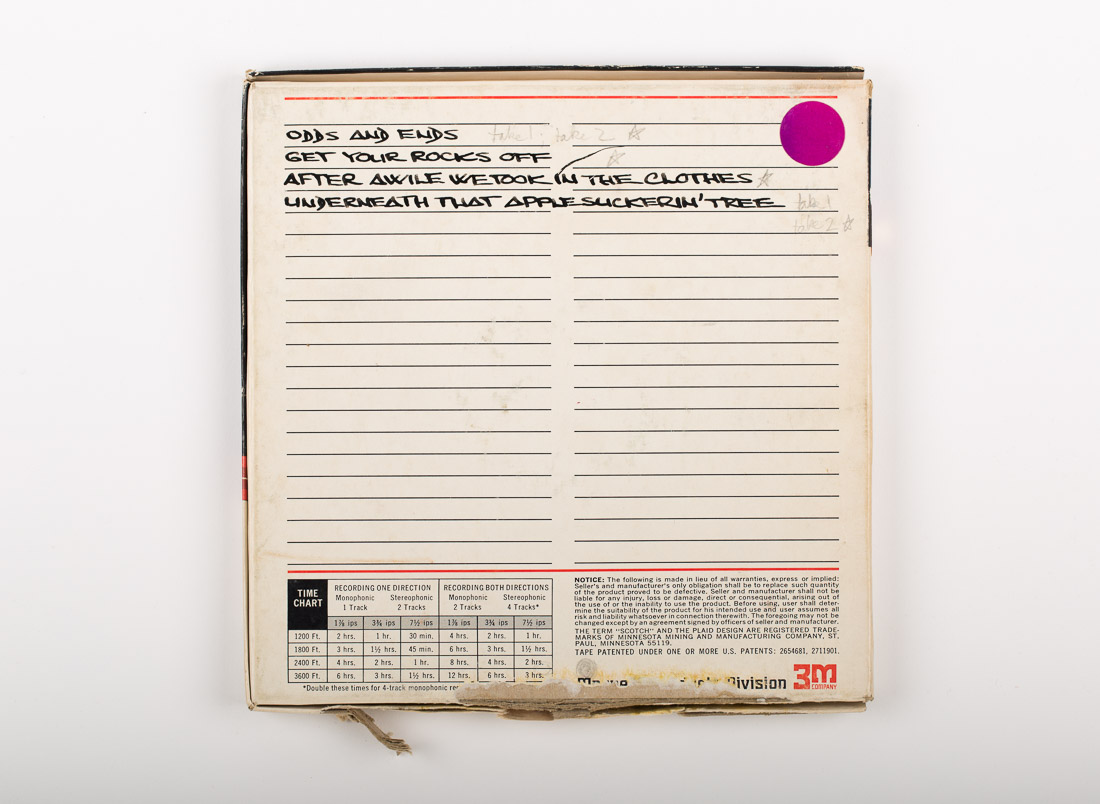 ODDS AND ENDS take 1 · take 2 ☆
GET YOUR ROCKS OFF ☆
AFTER AWILE WE TOOK IN THE CLOTHES ☆
UNDERNEATH THAT APPLE SUCKERIN' TREE take 1
take 2 ☆
TIME CHART
RECORDING ONE DIRECTION RECORDING BOTH DIRECTIONS
Monophonic Stereophonic Monophonic Stereophonic
1 Track 2 Tracks 2 Tracks 4 Tracks*
1⅞ ips 3¾ ips 7½ ips 1⅞ ips 3¾ ips 7½ ips
1200 Ft. 2 hrs. 1 hr. 30 min. 4 hrs. 2 hrs. 1 hr.
1800 Ft. 3 hrs. 1½ hrs. 45 min. 6 hrs. 3 hrs. 1½ hrs.
2400 Ft. 4 hrs. 2 hrs. 1 hr. 8 hrs. 4 hrs. 2 hrs.
3600 Ft. 6 hrs. 3 hrs. 1½ hrs. 12 hrs. 6 hrs. 3 hrs.
*Double these times for 4-track monophonic
NOTICE: The following is made in lieu of all warranties, express or implied:
Seller's and manufacturer's only obligation shall be to replace such quantity
of the product proved to be defective. Seller and manufacturer shall not be
liable for any injury, loss or damage, direct or consequential, arising out of
the use of or the inability to use the product. Before using, user shall deter-
mine the suitability of the product for his intended use and user assumes all
risk and liability whatsoever in connection therewith. The foregoing may not be
changed except by an agreement signed by officers of seller and manufacturer.
THE TERM "SCOTCH" AND THE PLAID DESIGN ARE REGISTERED TRADE-
MARKS OF MINNESOTA MINING AND MANUFACTURING COMPANY, ST.
PAUL, MINNESOTA 55119.
TAPE PATENTED UNDER ONE OR MORE U.S. PATENTS: 2654681, 2711901.
Division 3M COMPANY